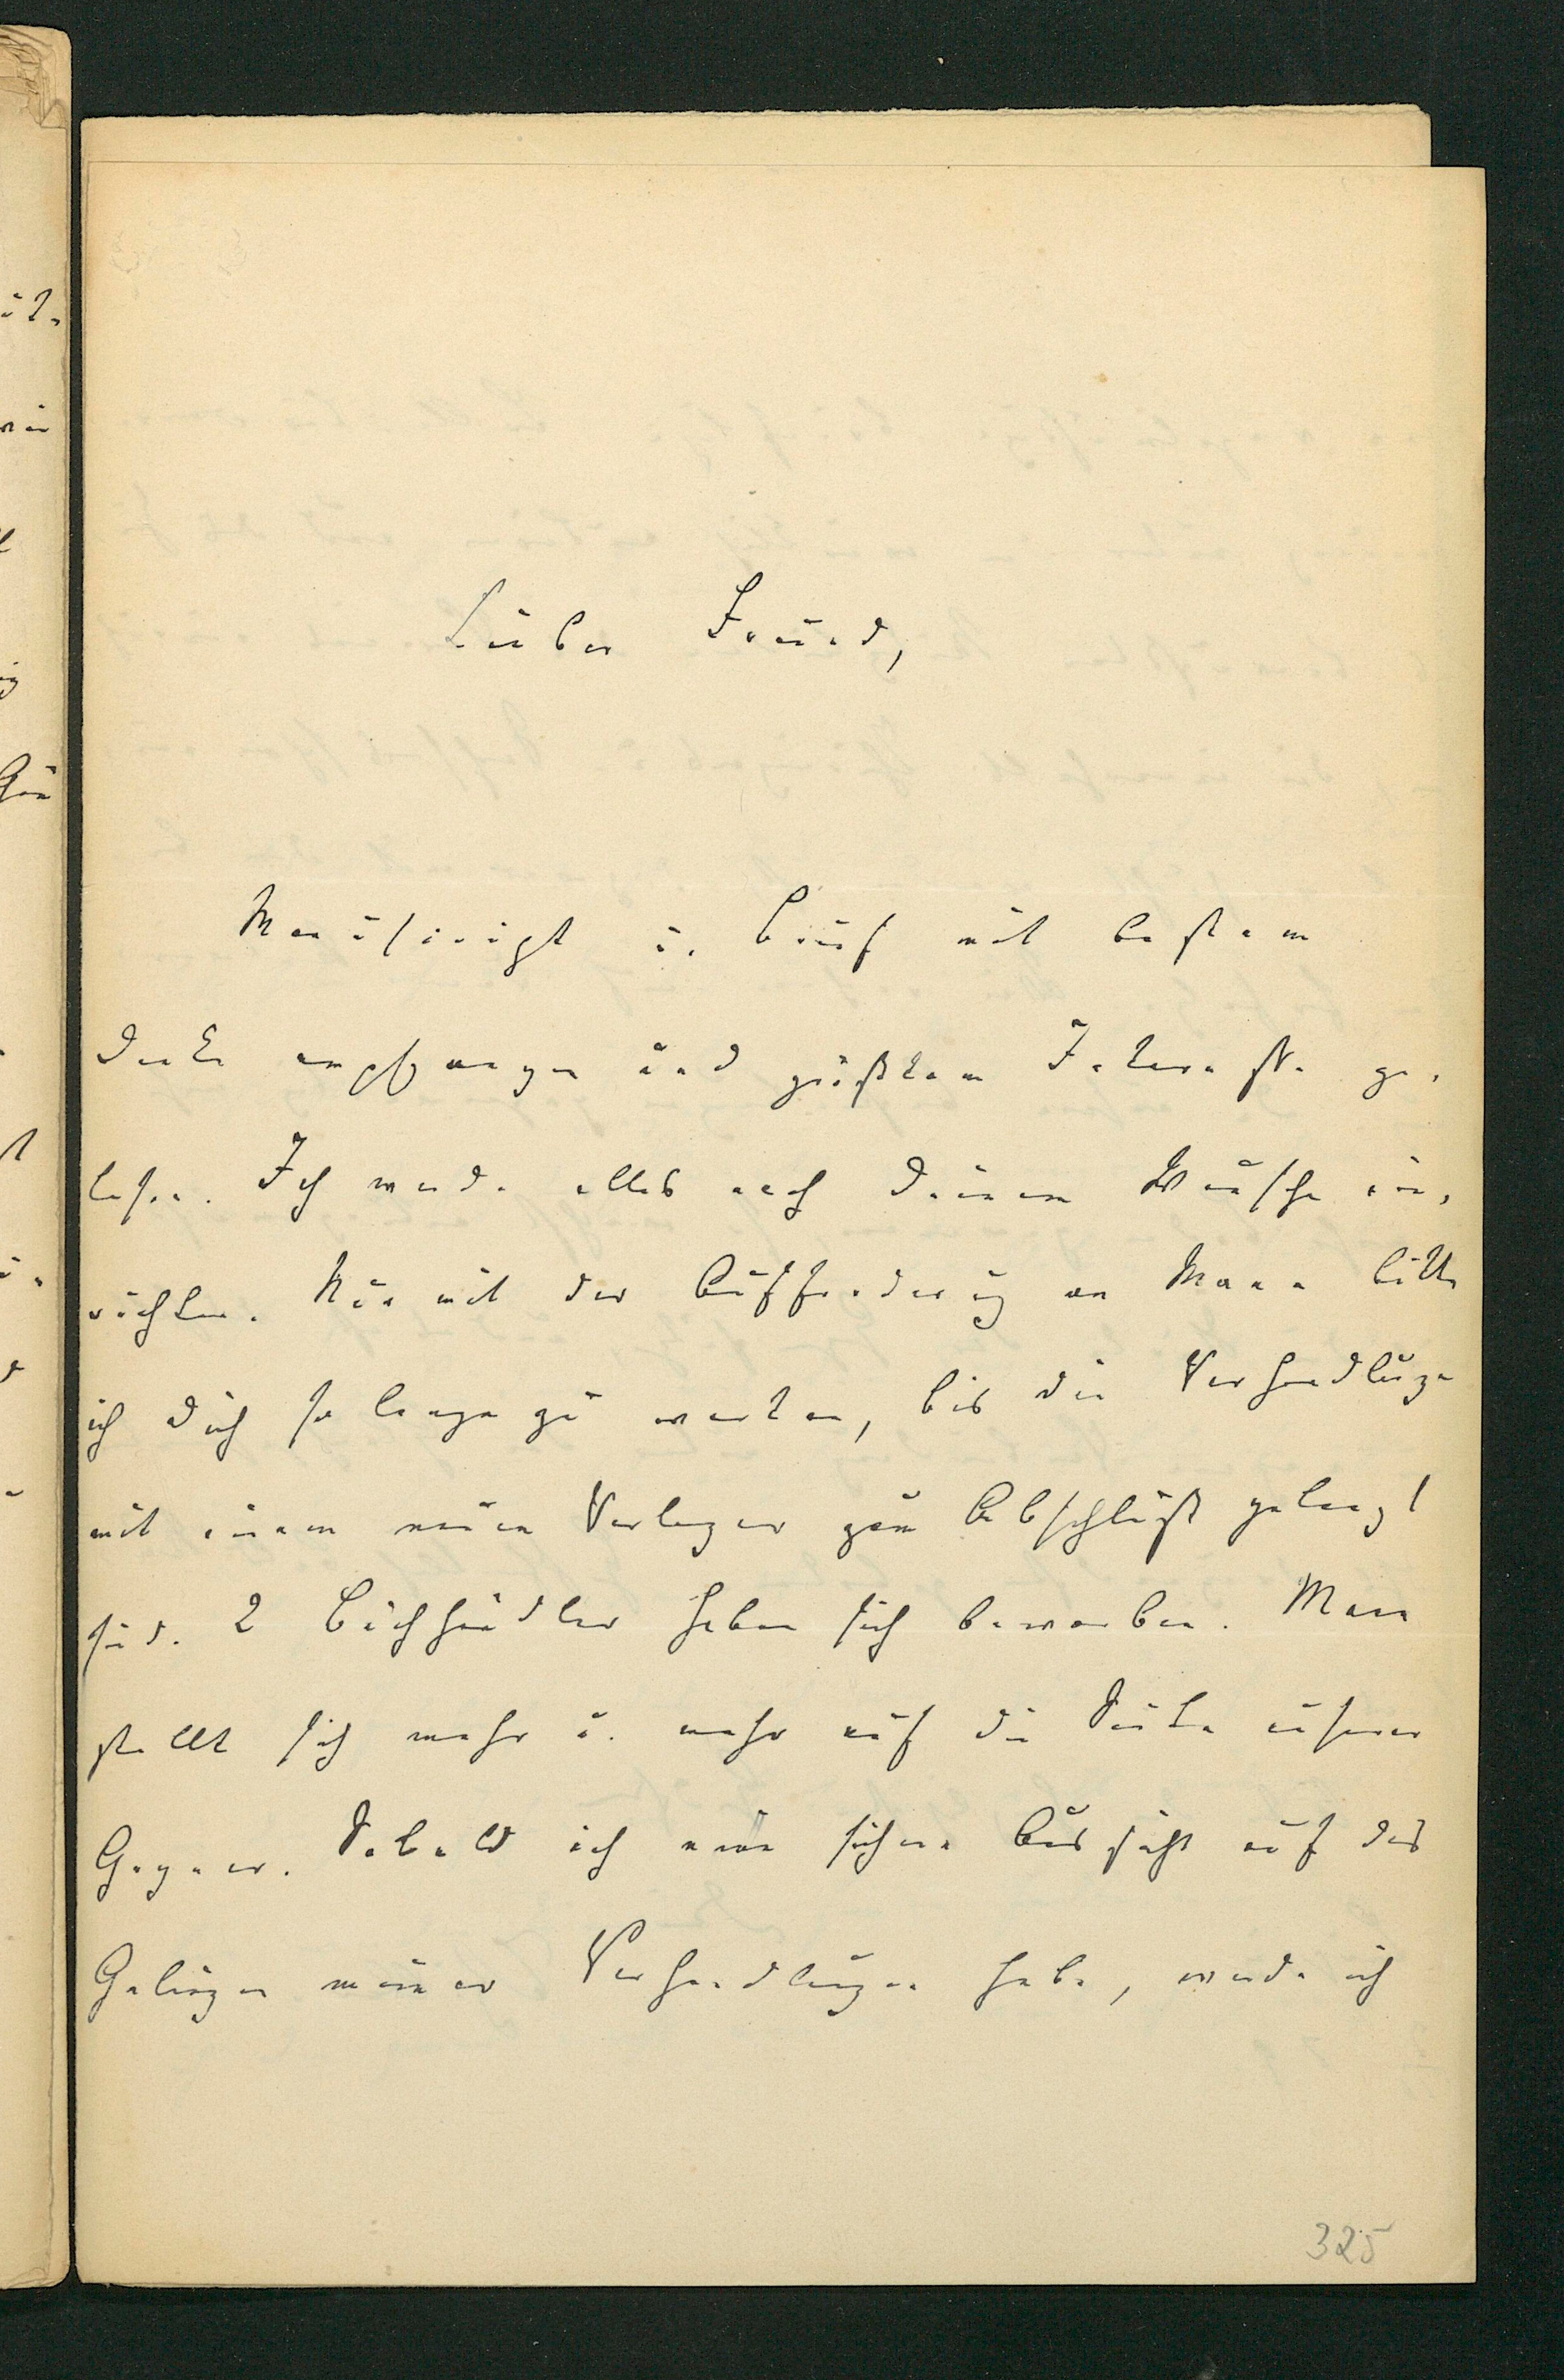 Lieber Freund,
Manuskript u. Brief mit bestem
Danke empfangen und größtem Interesse ge-
lesen. Ich werde alles nach Deinem Wunsche ein-
richten. Nur mit der Aufforderung an Mann bitte
ich Dich so lange zu warten, bis die Verhandlungen
mit einem neuen Verleger zum Abschluß gelangt
sind. 2 Buchhändler haben sich beworben. Mann
stellt sich mehr u. mehr auf die Seite unserer
Gegner. Sobald ich nun sichere Aussicht auf das
Gelingen meiner Verhandlungen habe, werde ich
325